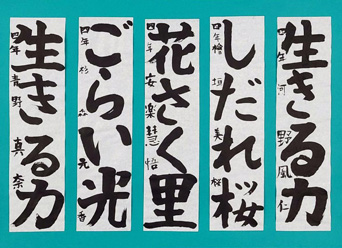 生きる力
四年 河野風仁
しだれ桜
四年 檜垣美桜
花さく里
四年 安楽慧悟
ごらい光
四年 杉森光香
生きる力
四年 青野真奈